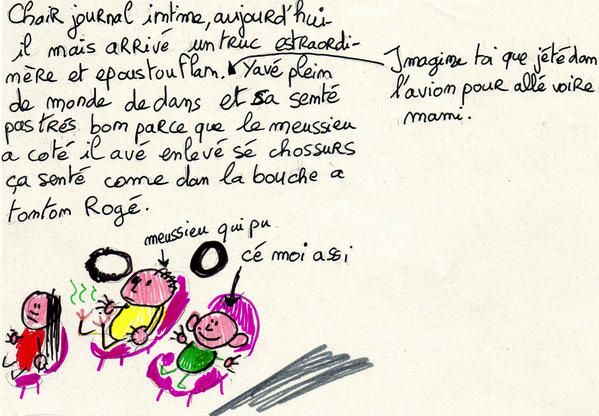 Chair journal imtime, aujourd'hui
il mais arrivé un truc estraordi-
mère et epoustouflam. Yavé pleim
de monde dedans et sa semté
pas très bom parce que le meussieu
a coté il avé emlevé sé chossurs
ça semté come dam la bouche a
tomtom Rogé.
Imagime toi que j'été dam
l'aviom pour allé voire
mami.
meussieu qui pu
cé moi assi